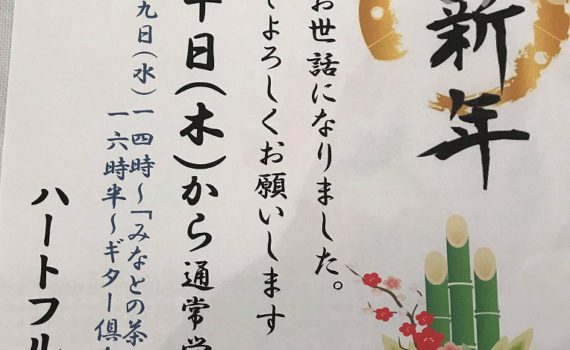 新年
お世話になりました。
よろしくお願いします
日(木)から通常
九日(水)一四時~「みなとの茶
一六時半~ギター倶
ハートフル